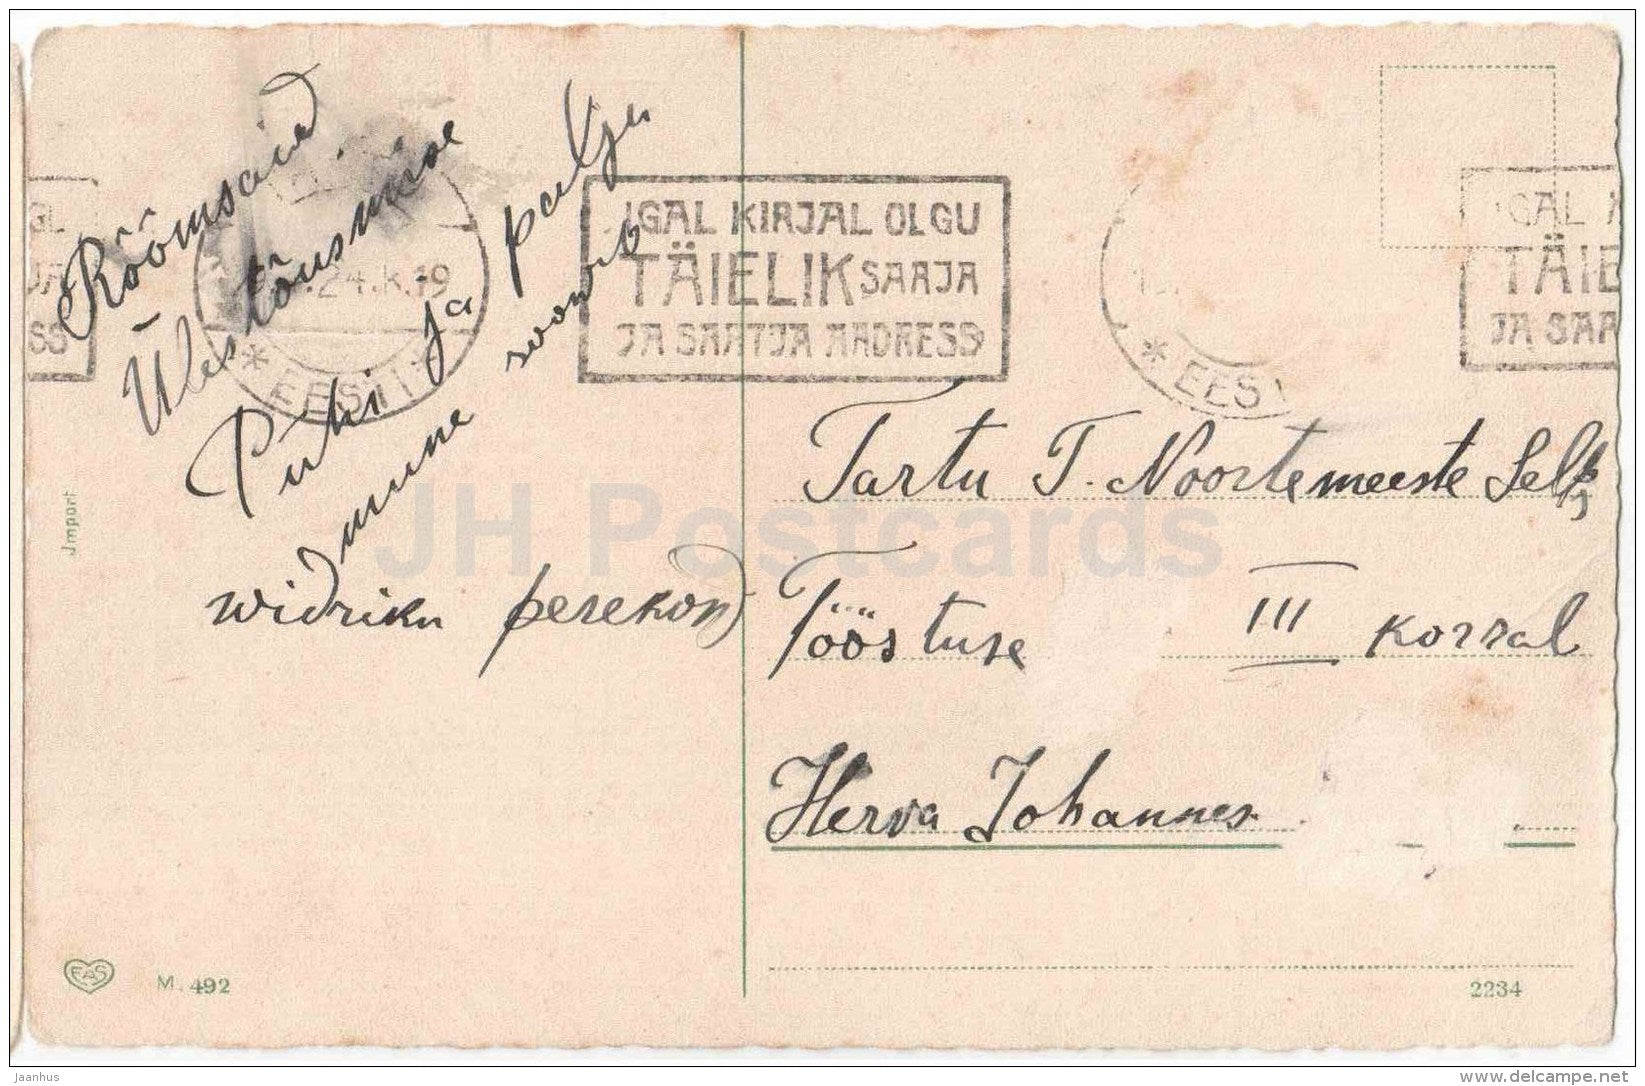 Rõõmsaid
Ülestõusmise
Pühi ja palju
mune soowib
widriku perekond
IGAL KIRJAL OLGU
TÄIELIK SAAJA
JA SAATJA AADRESS
24.K.19
* EESTI *
* EES
IGAL
TÄIE
JA SAA
GU
JA
SS
Tartu T. Noortemeeste Selts
Tööstuse III korral
Herva Johannes.
Jmport
EAS
M. 492
2234
JH Postcards
Jaanhus
www.delcampe.net